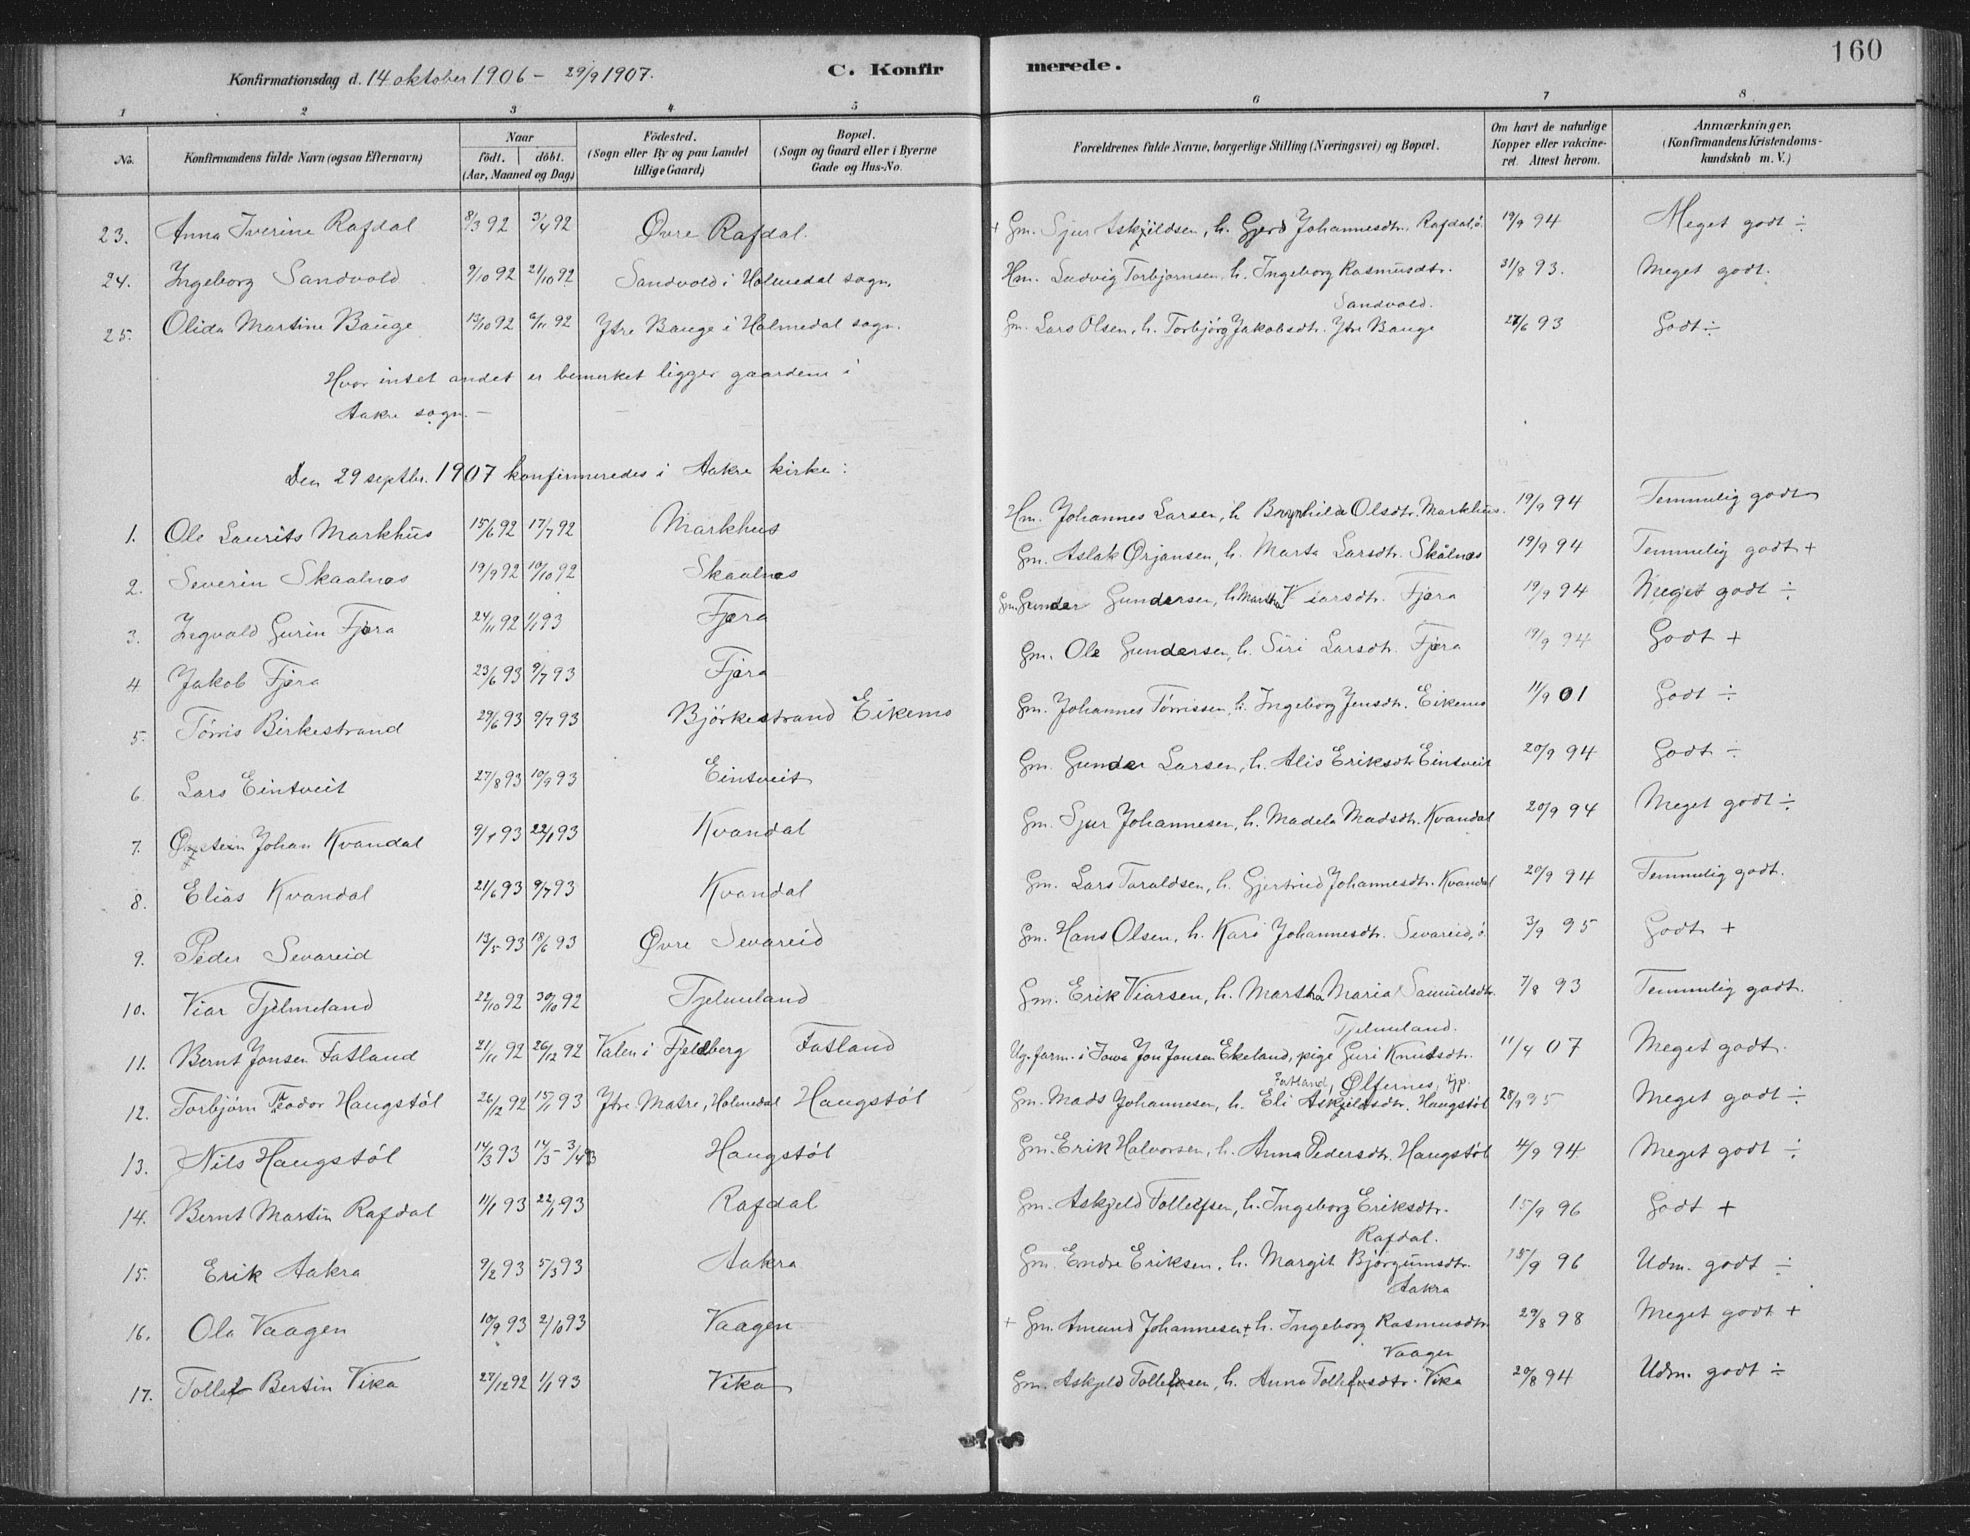 160
Konfirmationsdag d. 14 oktober 1906 – 29/9 1907. C. Konfirmerede.
1 2 3 4 5 6 7 8
No. Konfirmandens fulde Navn (ogsaa Efternavn) Naar födt. döbt. (Aar, Maaned og Dag) Födested. (Sogn eller By og paa Landet tillige Gaard) Bopæl. (Sogn og Gaard eller i Byerne Gade og Hus-No. Forældrenes fulde Navne, borgerlige Stilling (Næringsvei) og Bopæl. Om havt de naturlige Kopper eller vakcineret. Attest herom. Anmærkninger. (Konfirmandens Kristendomskundskab m. V.)
23. Anna Iverine Rafdal 8/3 92 3/4 92 Øvre Rafdal. + Gm. Sjur Askjildsen, h. Gjerd Johannesdtr. Rafdal, ö. 19/9 94 Meget godt ÷
24. Ingeborg Sandvold 9/10 92 21/10 92 Sandvold i Holmedal sogn. Hm. Ludvig Torbjørnsen, h. Ingeborg Rasmusdtr. Sandvold. 31/8 93. Meget godt.
25. Olida Martine Bauge 13/10 92 6/11 92 Ytre Bauge i Holmedal sogn. Gm. Lars Olsen, h. Torbjörg Jakobsdtr. Ytre Bauge 27/6 93 Godt ÷
Hvor intet andet er bemerket ligger gaardene i
Aakre sogn. –
Den 29 septbr. 1907 konfirmeredes i Aakre kirke:
1. Ole Laurits Markhus 15/6 92 17/7 92 Markhus Hm. Johannes Larsen, h. Brynhilda Olsdtr. Markhus. 19/9 94 Temmelig godt
2. Severin Skaalnes 19/9 92 10/10 92 Skaalnes Gm. Aslak Ørjansen, h. Marta Larsdtr. Skålnes 19/9 94 Temmelig godt +
3. Ingvald Gurin Fjæra 24/11 92 1/1 93 Fjæra Gm. Gunder Gundersen, h. Martha Viarsdtr. Fjæra 19/9 94 Meget godt ÷
4. Jakob Fjæra 23/6 93 9/7 93 Fjæra Gm. Ole Gundersen, h. Siri Larsdtr. Fjæra 19/9 94 Godt +
5. Törris Birkestrand 29/6 93 9/7 93 Björkestrand Eikemo Gm. Johannes Törrissen, h. Ingeborg Jensdtr. Eikemo 11/9 01 Godt ÷
6. Lars Eintveit 27/8 93 10/9 93 Eintveit Gm. Gunder Larsen, h. Alis Eriksdtr. Eintveit 20/9 94 Godt ÷
7. Øystein Johan Kvandal 9/1 93 22/1 93 Kvandal Gm. Sjur Johannesen, h. Madela Madsdtr. Kvandal 20/9 94 Meget godt ÷
8. Elias Kvandal 21/6 93 9/7 93 Kvandal Gm. Lars Taraldsen, h. Gjertrud Johannesdtr. Kvandal 20/9 94 Temmelig godt.
9. Peder Sevareid 13/5 93 18/6 93 Øvre Sevareid Gm. Hans Olsen, h. Kari Johannesdtr. Sevareid, ö. 3/9 95 Godt +
10. Viar Tjelmeland 22/10 92 30/10 92 Tjelmeland Gm. Erik Viarsen, h. Martha Maria Samuelsdtr. Tjelmeland. 7/8 93 Temmelig godt.
11. Bernt Jonsen Fatland 21/11 92 26/12 92 Valen i Fjelberg Fatland Ug. farm. i Iowa Jon Jonsen Ekeland, pige Guri Knutsdtr. Fatland, Ølfernes, tjp. 11/4 07 Meget godt.
12. Torbjörn Teodor Haugstöl 26/12 92 15/1 93 Ytre Matre, Holmedal Haugstöl Gm. Mads Johannesen, h. Eli Askjeldsdtr. Haugstöl 28/9 95 Meget godt ÷
13. Nils Haugstöl 14/3 93 14/3 – 3/4 93 Haugstöl Gm. Erik Halvorsen, h. Anna Pedersdtr. Haugstöl 4/9 94 Meget godt ÷
14. Bernt Martin Rafdal 11/1 93 22/1 93 Rafdal Gm. Askjeld Tollefsen, h. Ingeborg Eriksdtr. Rafdal. 15/9 96 Godt +
15. Erik Aakra 9/2 93 5/3 93 Aakra Gm. Endre Eriksen, h. Margit Björgumsdtr. Aakra 15/9 96 Udm. godt ÷
16. Ola Vaagen 10/9 93 2/10 93 Vaagen + Gm. Amund Johannesen + h. Ingeborg Rasmusdtr. Vaagen 29/8 98 Meget godt +
17. Tollef Bertin Vika 27/12 92 1/1 93 Vika Gm. Askjeld Tollefsen, h. Anna Tollefsdtr. Vika 20/8 94 Udm. godt ÷